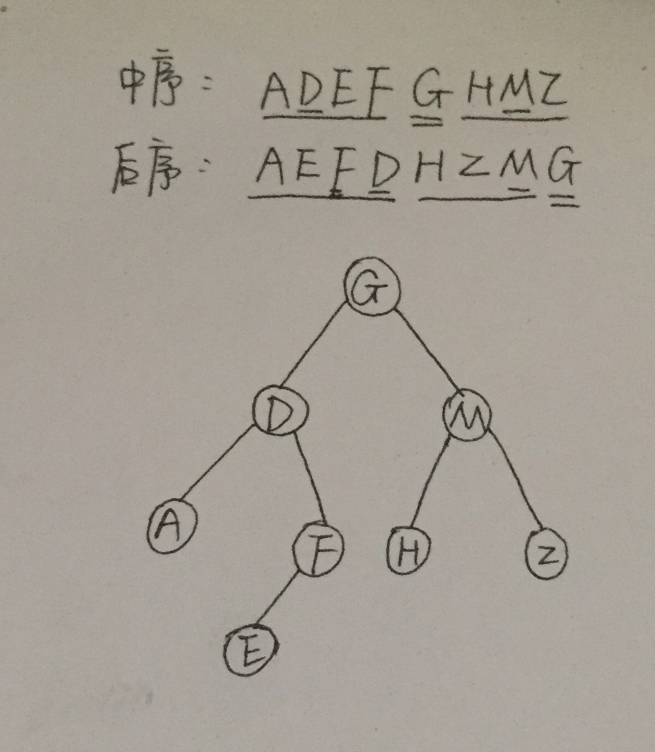 中序： ADEF G HMZ
后序： AEFD HZM G
G
D M
A F H Z
E